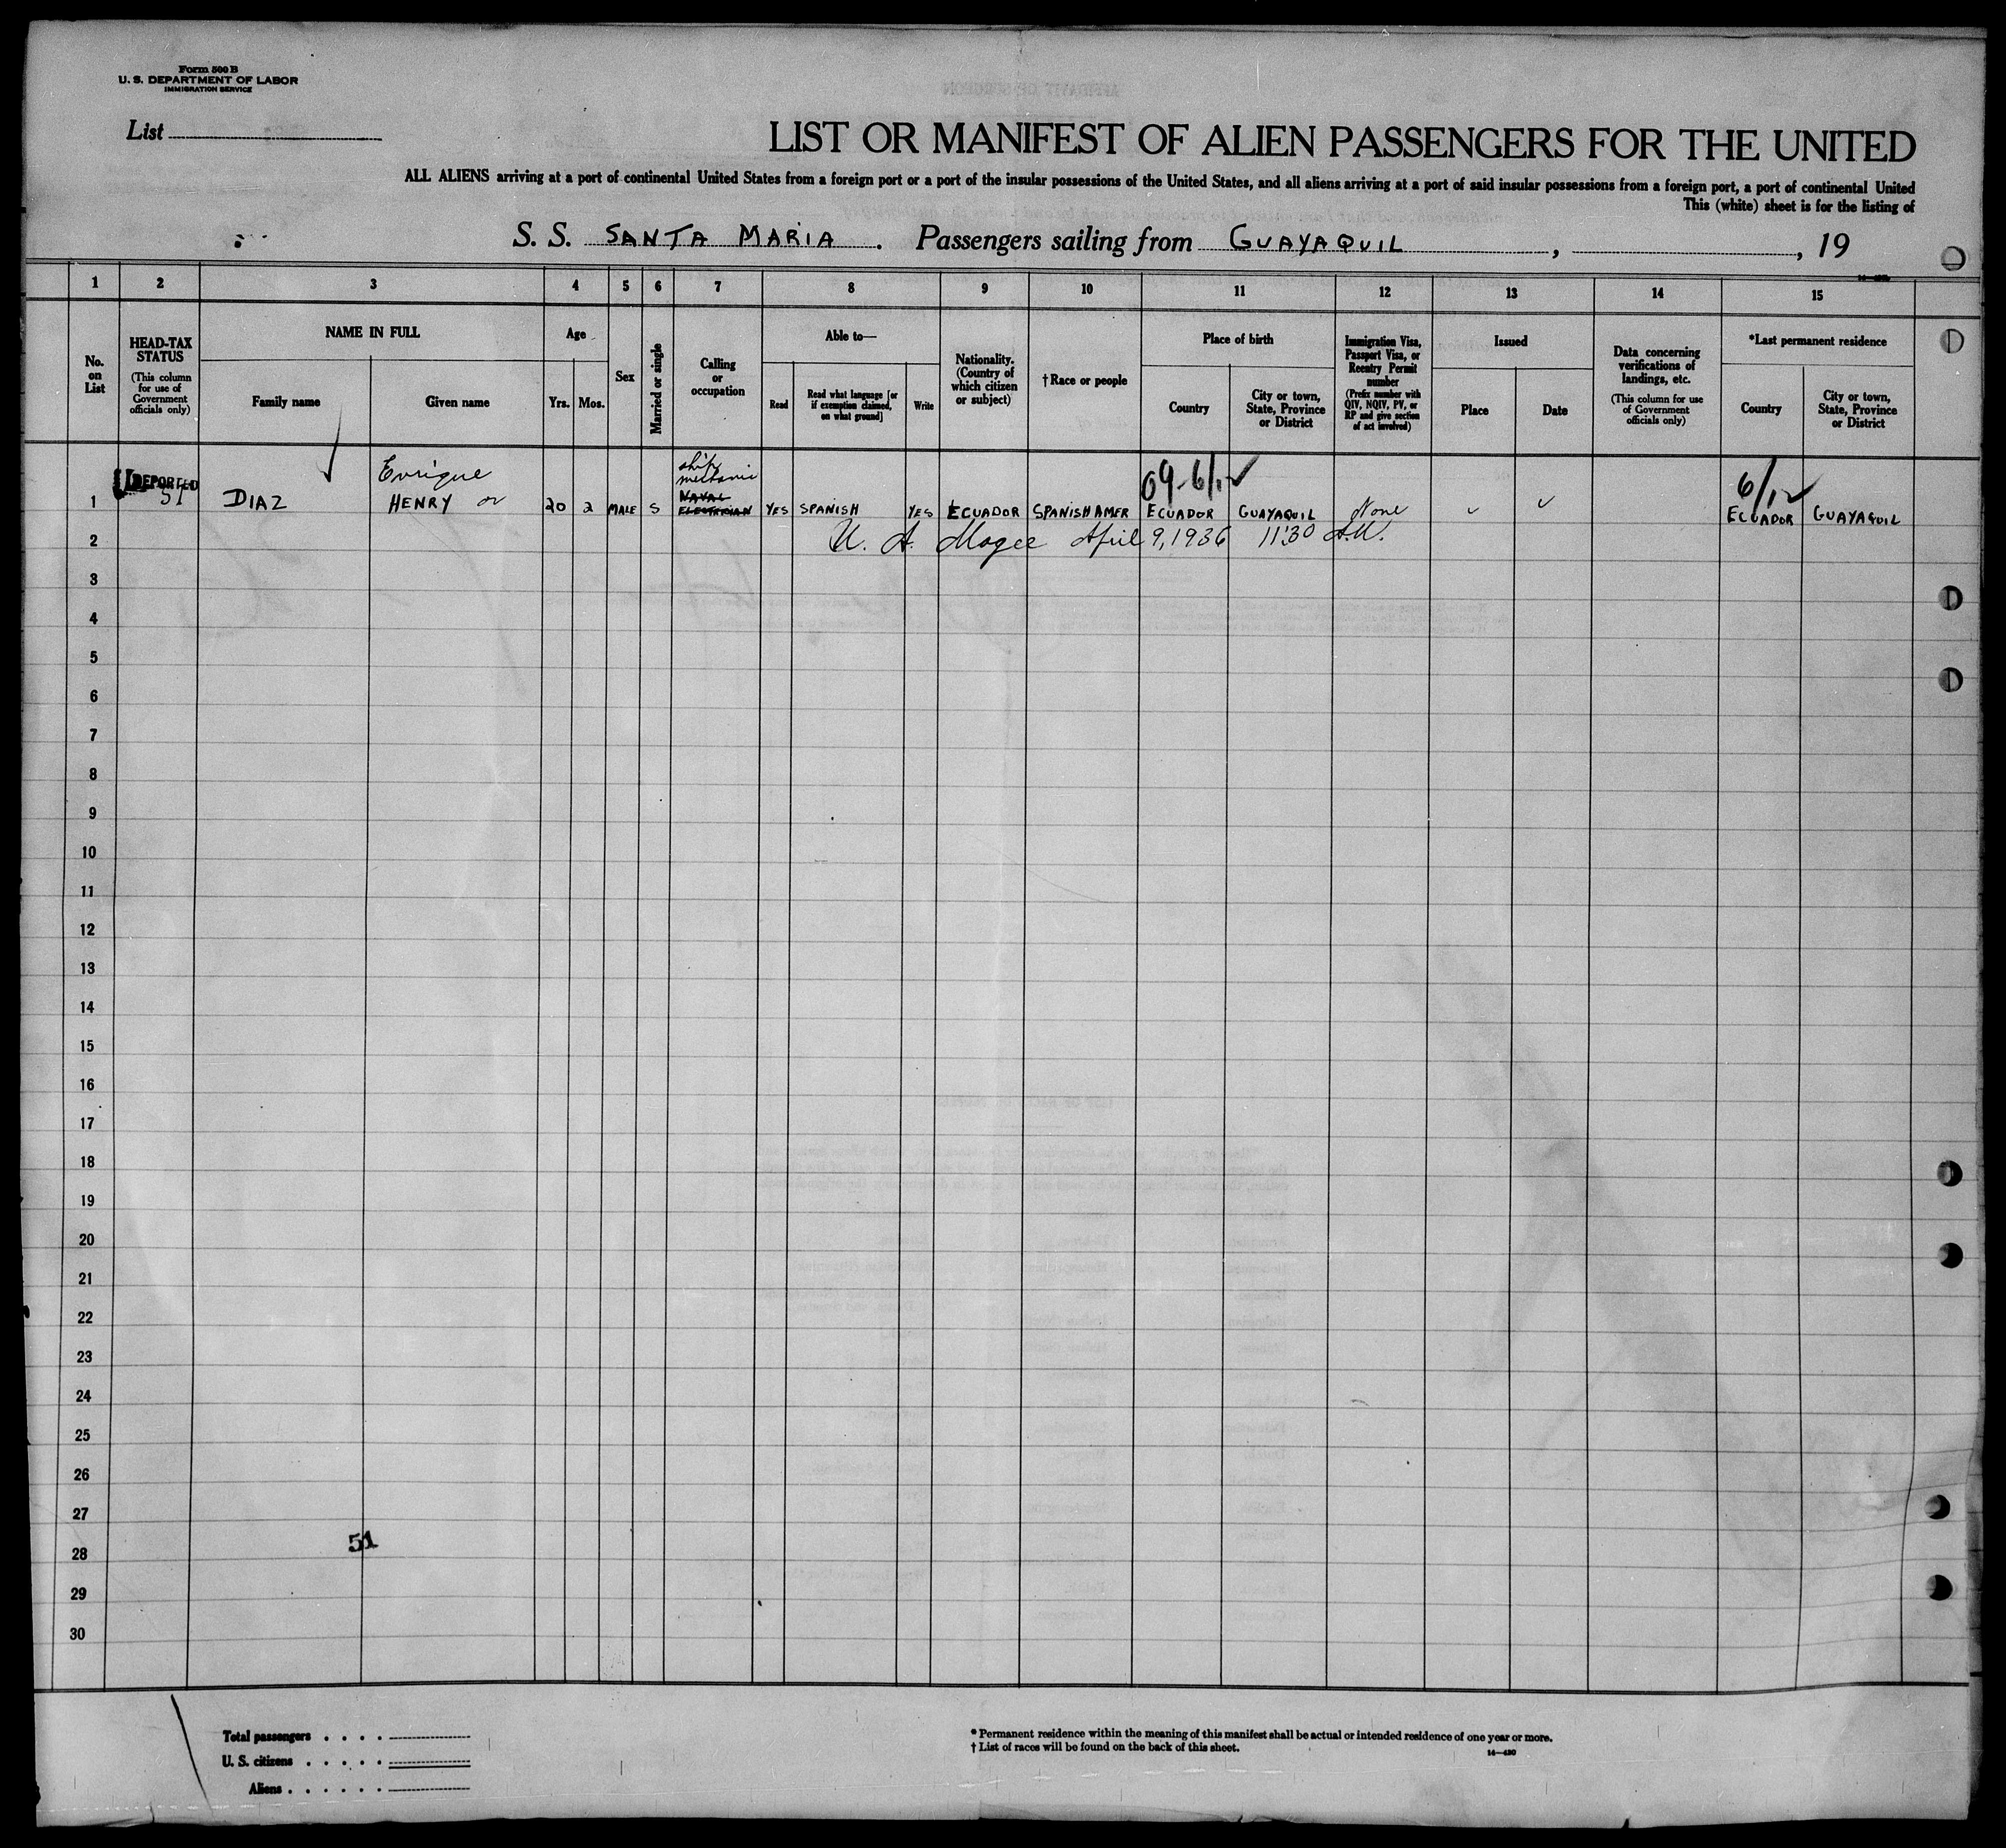 Form 500 B
U. S. DEPARTMENT OF LABOR
IMMIGRATION SERVICE
List
LIST OR MANIFEST OF ALIEN PASSENGERS FOR THE UNITED
ALL ALIENS arriving at a port of continental United States from a foreign port or a port of the insular possessions of the United States, and all aliens arriving at a port of said insular possessions from a foreign port, a port of continental United
This (white) sheet is for the listing of
S. S. SANTA MARIA . Passengers sailing from GUAYAQUIL , , 19
1 2 3 4 5 6 7 8 9 10 11 12 13 14 15
No. on List
HEAD-TAX STATUS
(This column for use of Government officials only)
NAME IN FULL
Family name
Given name
Age
Yrs. Mos.
Sex
Married or single
Calling or occupation
Able to—
Read
Read what language [or if exemption claimed, on what ground]
Write
Nationality. (Country of which citizen or subject)
†Race or people
Place of birth
Country
City or town, State, Province or District
Immigration Visa, Passport Visa, or Reentry Permit number
(Prefix number with QIV, NQIV, PV, or RP and give section of act involved)
Issued
Place
Date
Data concerning verifications of landings, etc.
(This column for use of Government officials only)
*Last permanent residence
Country
City or town, State, Province or District
Enrique
ship mechanic
DEPORTED
51
1 DIAZ HENRY or 20 2 MALE S NAVAL ELECTRICIAN YES SPANISH YES ECUADOR SPANISH AMER ECUADOR GUAYAQUIL None ECUADOR GUAYAQUIL
2 Magee April 9, 1936 11:30 A.M.
3
4
5
6
7
8
9
10
11
12
13
14
15
16
17
18
19
20
21
22
23
24
25
26
27
51
28
29
30
Total passengers . . . .
U. S. citizens . . . . .
Aliens . . . . . .
* Permanent residence within the meaning of this manifest shall be actual or intended residence of one year or more.
† List of races will be found on the back of this sheet.
14—430